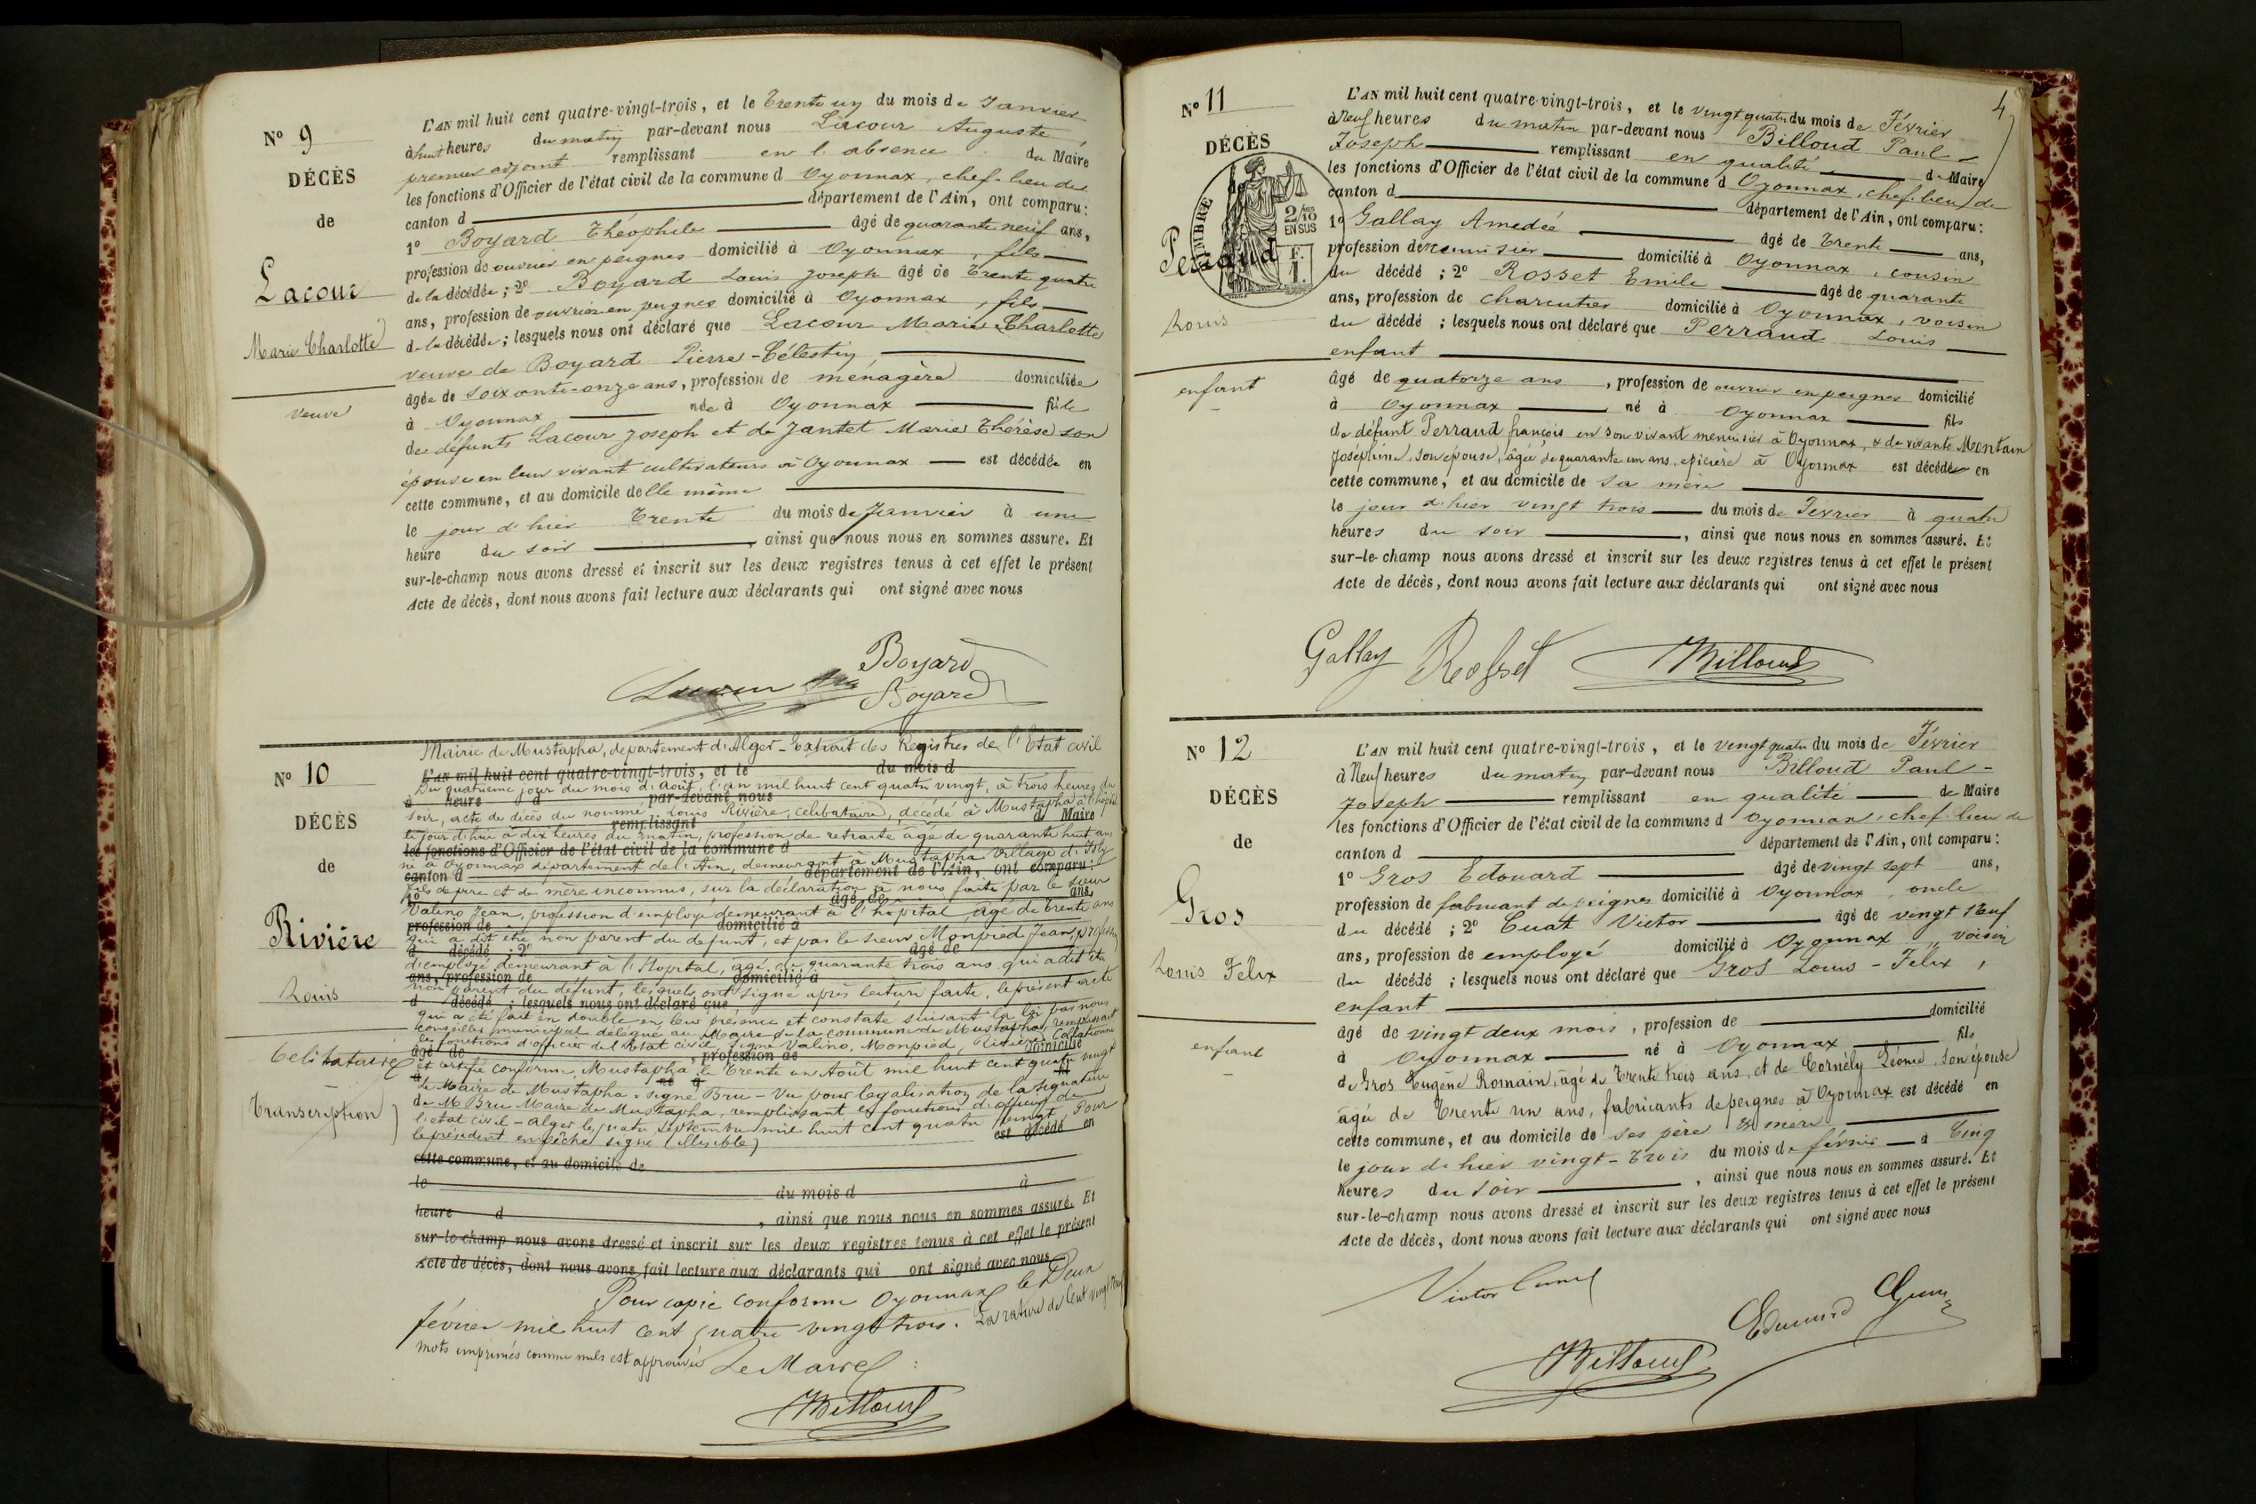 N° 9
DÉCÈS
de
Lacour
Marie Charlotte
veuve
L'AN mil huit cent quatre-vingt-trois, et le Trente un du mois de Janvier
à huit heures du matin par-devant nous Lacour Auguste
premier adjoint remplissant en l'absence du Maire
les fonctions d'Officier de l'état civil de la commune d Oyonnax, chef-lieu de
canton d département de l'Ain, ont comparu:
1° Boyard Théophile âgé de quarante neuf ans,
profession de ouvrier en peignes domicilié à Oyonnax, fils
de la décédée; 2° Boyard Louis Joseph âgé de Trente quatre
ans, profession de ouvrier en peignes domicilié à Oyonnax, fils
de la décédée; lesquels nous ont déclaré que Lacour Marie Charlotte
veuve de Boyard Pierre-Célestin,
âgée de soixante-onze ans, profession de ménagère domiciliée
à Oyonnax née à Oyonnax fille
des défunts Lacour Joseph et de Jantet Marie Thérèse son
épouse en leur vivant cultivateurs à Oyonnax est décédée en
cette commune, et au domicile delle même
le jour d'hier Trente du mois de Janvier à une
heure du soir, ainsi que nous nous en sommes assuré. Et
sur-le-champ nous avons dressé et inscrit sur les deux registres tenus à cet effet le présent
Acte de décès, dont nous avons fait lecture aux déclarants qui ont signé avec nous
Boyard
Lacour
Boyard
N° 10
DÉCÈS
de
Rivière
Louis
Celibataire
Transcription
Mairie de Mustapha, département d'Alger - Extrait des Registres de l'Etat civil
L'AN mil huit cent quatre-vingt-trois, et le du mois d
Du quatrième jour du mois d'Août, l'an mil huit cent quatre vingt, à trois heures du
à heure d par-devant nous
soir, acte de décès du nommé Louis Rivière, célibataire, décédé à Mustapha à l'hôpital
remplissant d Maire
le jour d'hui à dix heures du matin, profession de retraité âgé de quarante huit ans
les fonctions d'Officier de l'état civil de la commune d
né à Oyonnax département de l'Ain, demeurant à Mustapha Village d'Isly
canton d département de l'Ain, ont comparu:
fils de père et de mère inconnus, sur la déclaration à nous faite par le sieur
1° âgé de ans,
Valino Jean, profession d'employé demeurant à l'hôpital âgé de Trente ans
profession de domicilié à
qui a dit être non parent du défunt, et par le sieur Monpied Jean, profession
d décédé; 2° âgé de
d'employé demeurant à l'Hopital, âgé de quarante trois ans qui a dit être
ans, profession de domicilié à
non parent du défunt, lesquels ont signé après lecture faite, le présent acte
d décédé; lesquels nous ont déclaré que
qui a été fait en double en leur présence et constaté suivant la loi par nous
conseiller municipal délégué au Maire de la commune de Mustapha, remplissant
les fonctions d'officier de l'Etat civil, signé Valino, Monpied, Rivière Collationné
âgé de, profession de domicilié
et certifié conforme, Mustapha le Trente un Août mil huit cent quatre vingt
à né à fil
le Maire de Mustapha - signé Bru - Vu pour légalisation de la signature
de M. Bru Maire de Mustapha, remplissant les fonctions d'officier de
l'état civil - Alger le quatre Septembre mil huit cent quatre vingt, Pour
le président empêché signé (illisible)
est décédé en
cette commune, et au domicile de
le du mois d à
heure d, ainsi que nous nous en sommes assuré. Et
sur-le-champ nous avons dressé et inscrit sur les deux registres tenus à cet effet le présent
Acte de décès, dont nous avons fait lecture aux déclarants qui ont signé avec nous
Pour copie conforme Oyonnax le Deux
février mil huit cent quatre vingt trois. La rature de Cent vingt neuf
mots imprimés comme nuls est approuvée Le Maire
PBilloud
4
N° 11
DÉCÈS
TIMBRE
2/10 EN SUS
F. 1.
Perraud
Louis
enfant
L'AN mil huit cent quatre-vingt-trois, et le vingt quatre du mois de Février
à Neuf heures du matin par-devant nous Billoud Paul
Joseph remplissant en qualité de Maire
les fonctions d'Officier de l'état civil de la commune d Oyonnax, chef-lieu de
canton d département de l'Ain, ont comparu:
1° Gallay Amedée âgé de Trente ans,
profession de menuisier domicilié à Oyonnax, cousin
du décédé; 2° Rosset Emile âgé de quarante
ans, profession de charcutier domicilié à Oyonnax, voisin
du décédé; lesquels nous ont déclaré que Perraud Louis
enfant
âgé de quatorze ans, profession de ouvrier en peignes domicilié
à Oyonnax né à Oyonnax fils
de défunt Perraud françois en son vivant menuisier à Oyonnax, & de vivante Montain
Joséphine, son épouse, âgée de quarante un ans, épicière à Oyonnax est décédé en
cette commune, et au domicile de sa mère
le jour d'hier vingt trois du mois de Février à quatre
heures du soir, ainsi que nous nous en sommes assuré. Et
sur-le-champ nous avons dressé et inscrit sur les deux registres tenus à cet effet le présent
Acte de décès, dont nous avons fait lecture aux déclarants qui ont signé avec nous
Gallay Rosset PBilloud
N° 12
DÉCÈS
de
Gros
Louis Félix
enfant
L'AN mil huit cent quatre-vingt-trois, et le vingt quatre du mois de Février
à Neuf heures du matin par-devant nous Billoud Paul-
Joseph remplissant en qualité de Maire
les fonctions d'Officier de l'état civil de la commune d Oyonnax, chef-lieu de
canton d département de l'Ain, ont comparu:
1° Gros Edouard âgé de vingt sept ans,
profession de fabricant de peignes domicilié à Oyonnax, oncle
du décédé; 2° Cuat Victor âgé de vingt Neuf
ans, profession de employé domicilié à Oyonnax, voisin
du décédé; lesquels nous ont déclaré que Gros Louis-Félix,
enfant
âgé de vingt deux mois, profession de domicilié
à Oyonnax né à Oyonnax fils
de Gros Eugène Romain, âgé de Trente trois ans, et de Cornély Léonie, son épouse
âgée de Trente un ans, fabricants de peignes à Oyonnax est décédé en
cette commune, et au domicile de ses père & mère
le jour d'hier vingt-Trois du mois de février à Cinq
heures du soir, ainsi que nous nous en sommes assuré. Et
sur-le-champ nous avons dressé et inscrit sur les deux registres tenus à cet effet le présent
Acte de décès, dont nous avons fait lecture aux déclarants qui ont signé avec nous
Victor
Edouard
PBilloud